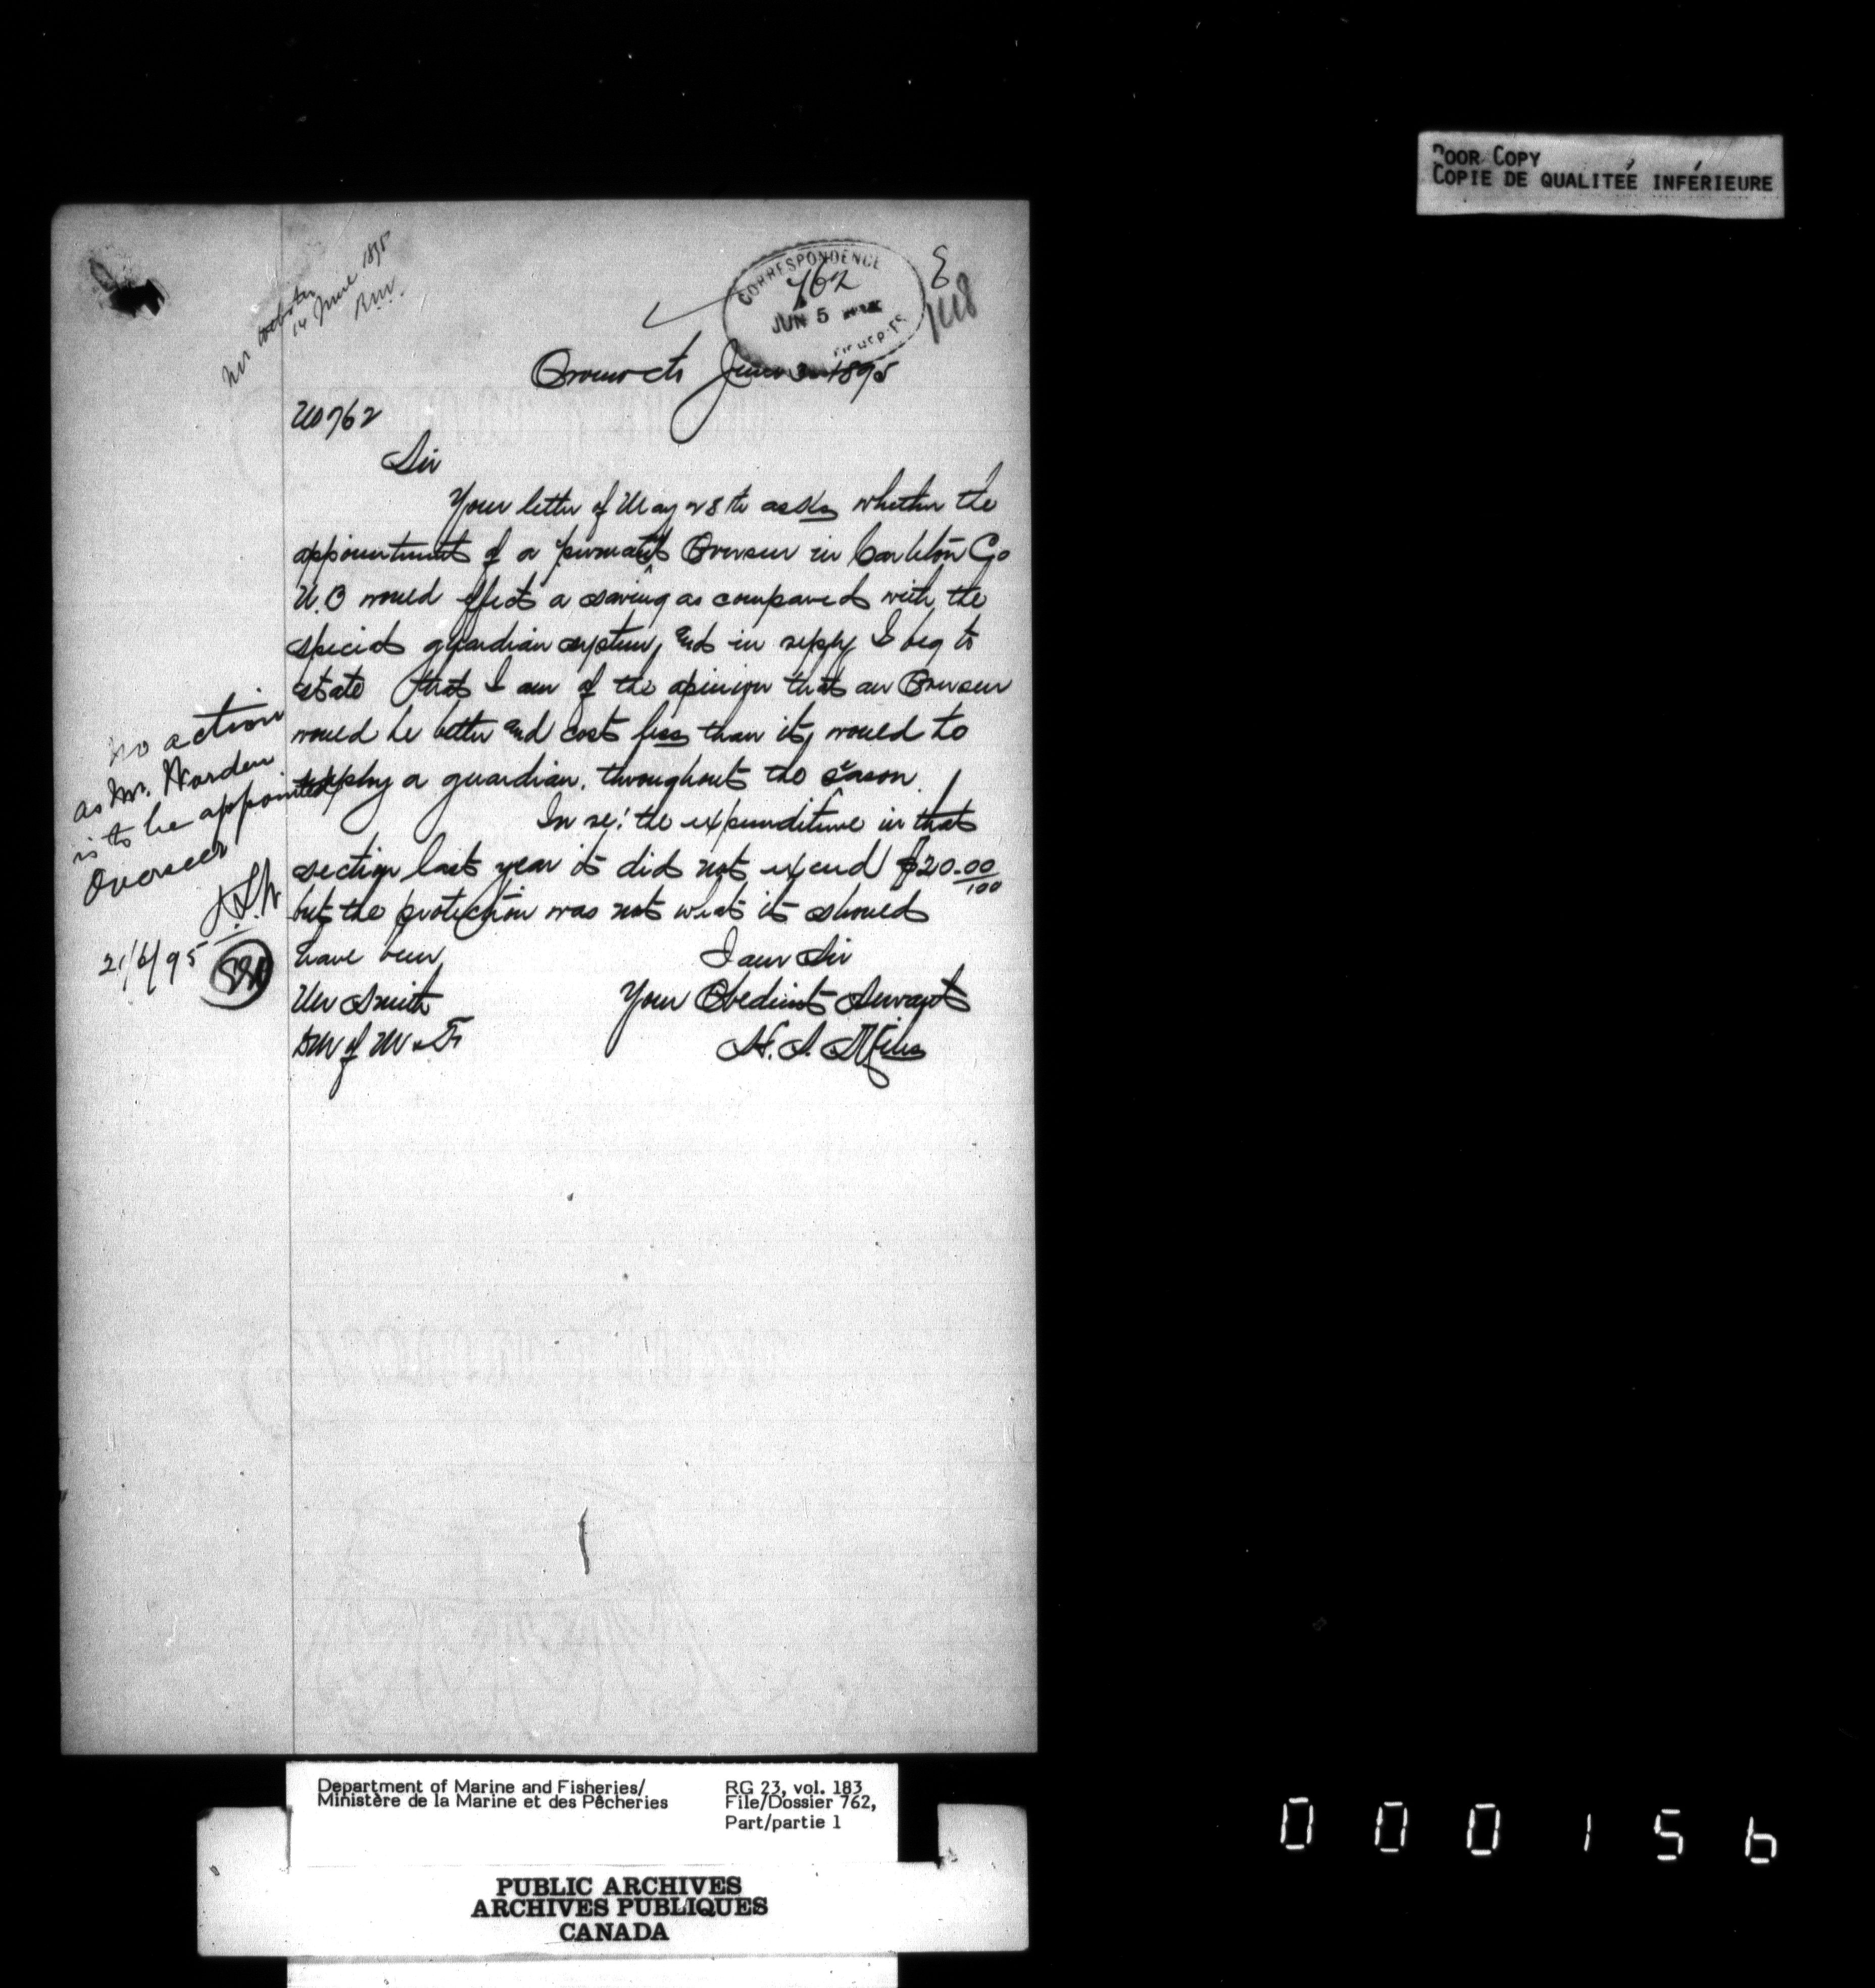 POOR COPY
COPIE DE QUALITÉE INFÉRIEURE
Mr Webster
14 June 1895
CORRESPONDENCE
762
JUN 5
FISHERIES
Oromocto June 3 1895
No 762
Sir
Your letter of May 28th asks whether the
appointment of a permant Overseer in Carleton Co
N.B would effect a saving as compared with the
special guardian system, and in reply I beg to
state that I am of the opinion that an Overseer
would be better and cost less than it would to
employ a guardian. throughout the season.
In re: the expenditure in that
section last year it did not exceed $20.00/100
but the protection was not what it should
have been,
I am Sir
Your Obedient Servant
H. S. Miles
Wm Smith
DM of M & F
no action
as Mr. Harden
is to be appointed
Overseer
21/6/95
Department of Marine and Fisheries/
Ministère de la Marine et des Pêcheries
RG 23, vol. 183
File/Dossier 762,
Part/partie 1
PUBLIC ARCHIVES
ARCHIVES PUBLIQUES
CANADA
000156